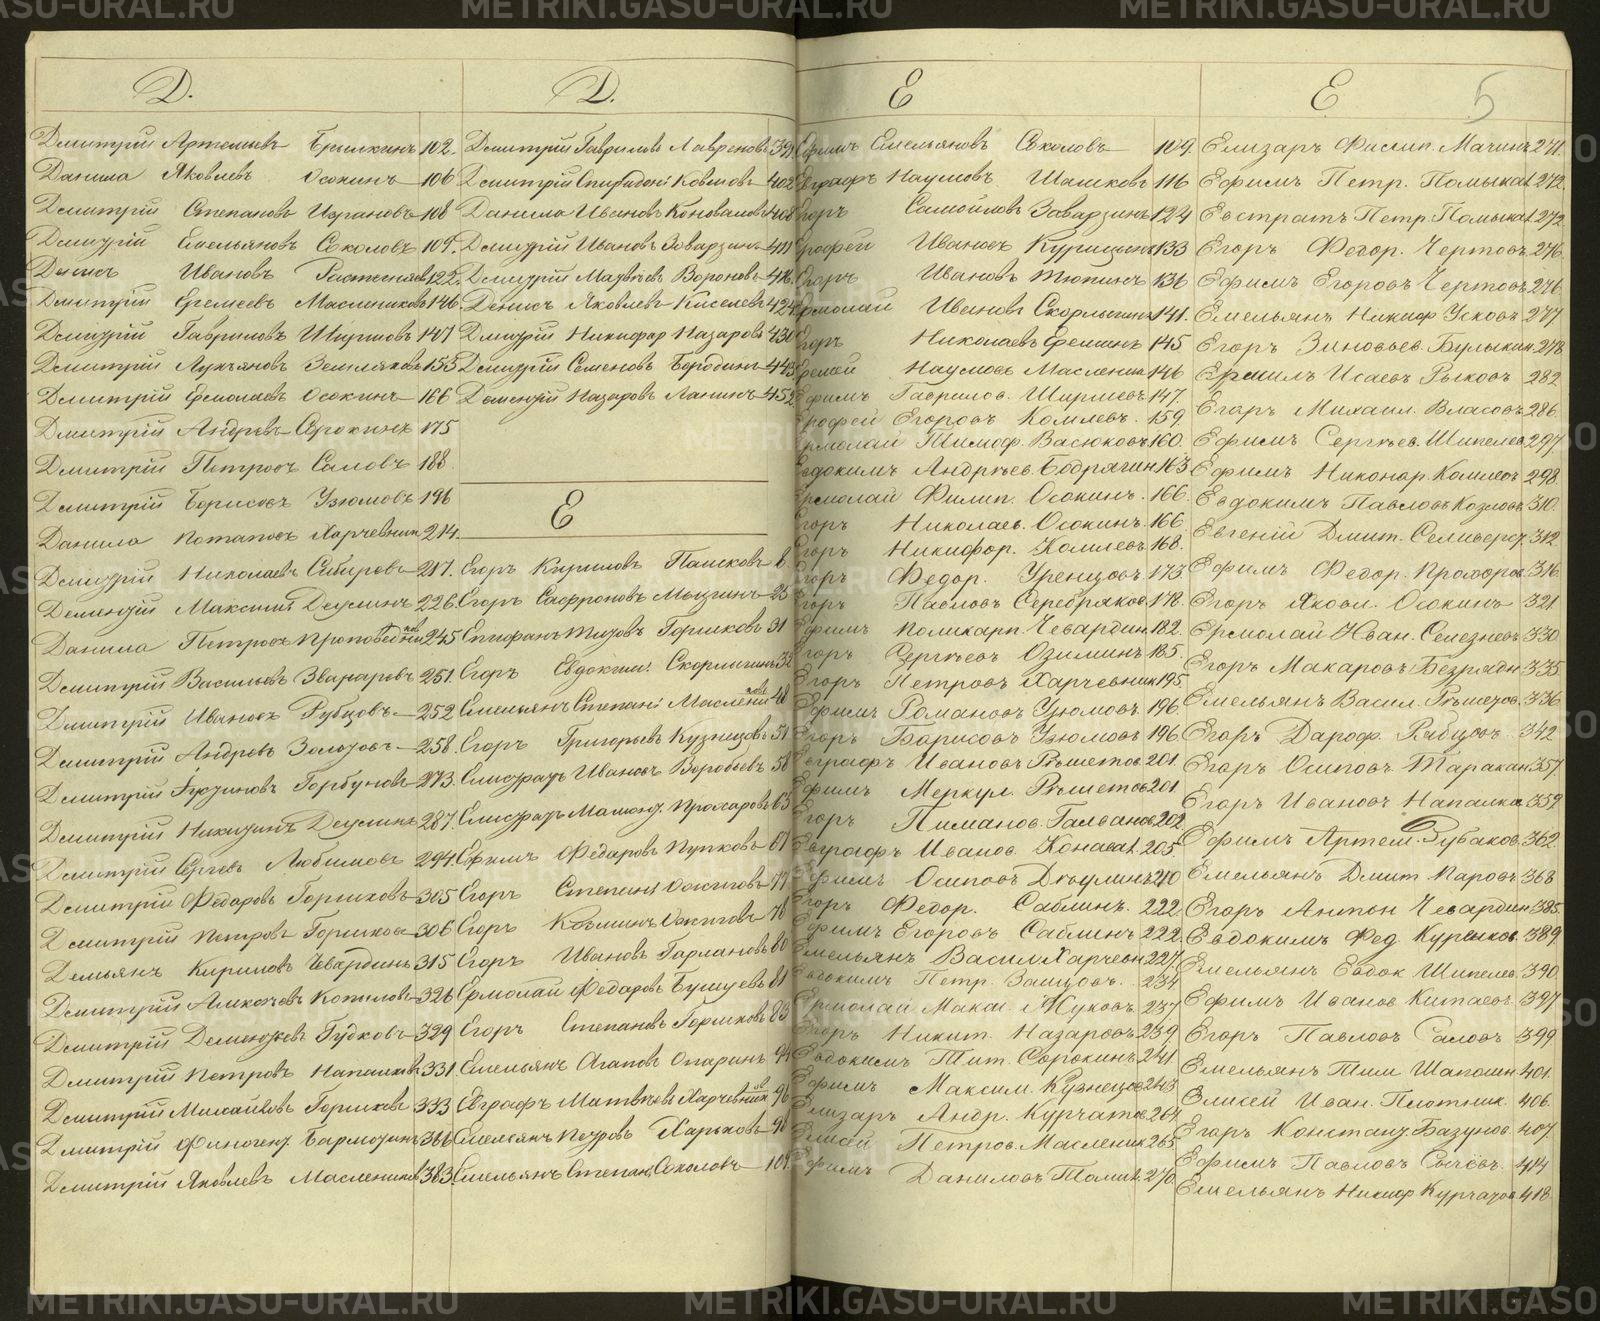 METRIKI.GASU-URAL.RU
Д.
Дмитрій Артемьевъ Брылкинъ 102.
Данила Яковлевъ Осокинъ 106
Дмитрій Степановъ 108
Дмитрій Емельяновъ Соколовъ 109.
Ивановъ 122.
Дмитрій Еремеевъ Маслениковъ 146.
Дмитрій Гавриловъ Ширшовъ 147
Дмитрій Лукъяновъ Земляковъ 155
Дмитрій Ермолаевъ Осокинъ 166
Дмитрій Андревъ Сорокинъ 175
Дмитрій Петровъ Саловъ 188.
Дмитрій Борисовъ Узюмовъ 196
Данила Потаповъ Харчевник 214.
Дмитрій Николаевъ Сибиревъ 217.
Дементій Максим. Деулинъ 226.
Данила Петровъ 245
Дмитрій Васильевъ 251.
Дмитрій Ивановъ Рубцовъ 252
Дмитрій Андревъ Золотовъ 258.
Дмитрій Горбуновъ 273.
Дмитрій Никитинъ Деулинъ 287.
Дмитрій Сергевъ Любимовъ 294
Дмитрій Федоровъ Горшковъ 305
Дмитрій Петровъ Горшковъ 306
Демьянъ Кириловъ Чевардинъ 315
Дмитрій Алексевъ Копыловъ 326
Дмитрій Дементьевъ Гудковъ 329
Дмитрій Петровъ Напалков 331.
Дмитрій Михайловъ Горшковъ 333
Дмитрій Финоген. 366
Дмитрій Яковлевъ Маслеников 383.
Д.
Дмитрій Гавриловъ Лавреновъ 391
Дмитрій Спиридон. Ковшовъ 402
Данила Ивановъ Коноваловъ 408
Дмитрій Ивановъ Заварзинъ 411
Дмитрій Матвѣевъ Вороновъ 416.
Денисъ Яковлевъ Киселевъ 424
Дмитрій Никифор. Назаровъ 430
Дмитрій Семеновъ Бородинъ 443
Дементій Назаровъ Ланинъ 452
Е
Егоръ Кириловъ Пашковъ 8
Егоръ Сафроновъ 25
Епифанъ Титовъ Горшковъ 31
Егоръ Евдоким. 32
Емельянъ Степан. 48
Егоръ Григорьевъ Кузнецовъ 51
Елистратъ Ивановъ Воробьевъ 58
Елистратъ Прохаровъ 65
Ефимъ Федоровъ Пупковъ 67
Егоръ Степан. Ожиговъ 77
Егоръ Козминъ Ожиговъ 78
Егоръ Ивановъ 80
Ермолай Федоровъ Бушуевъ 81
Егоръ Степановъ Горшковъ 83
Емельянъ Агаповъ Опаринъ 94
Евграфъ Матвѣевъ Харчевников 96
Емельянъ Петровъ Харьковъ 98
Емельянъ Степан. Соколовъ 109
Е
Ефимъ Емельяновъ Соколовъ 109.
Евграфъ Наумовъ Шашковъ 116
Егоръ Самойловъ Заварзинъ 124
Ерофей Ивановъ Курицынъ 133
Егоръ Ивановъ Тюпинъ 136
Ермолай Ивановъ 141.
Егоръ Николаевъ Ереминъ 145
Еремей Наумовъ Маслени 146
Ефимъ Гаврилов. Ширшовъ 147.
Ерофей Егоровъ Комлевъ. 159.
Ермолай Тимоф. Васюковъ 160.
Евдокимъ Андрѣев. Бодрягин 163
Ермолай Филип. Осокинъ. 166.
Егоръ Николаев. Осокинъ. 166
Егоръ Никифор. Комлевъ 168.
Егоръ Федор. Уренцовъ. 173.
Егоръ Павловъ Серебряков 178.
Ефимъ Поликарп. Чевардин 182.
Егоръ Сергѣевъ Озиминъ 185.
Егоръ Петровъ Харчевник 195.
Ефимъ Романовъ Узюмовъ. 196
Егоръ Борисовъ Узюмовъ 196
Евграфъ Ивановъ Рѣшетов. 201.
Ефимъ Меркул. Рѣшетов 201
Егоръ Пиманов. Галванов 202
Евграфъ Иванов. 205.
Ефимъ Осиповъ Деулинъ 210
Егоръ Федор. Саблинъ. 222.
Ефимъ Егоровъ Саблинъ 222.
Емельянъ Васил. Харчевн 227.
Евдокимъ Петр. Зайцовъ. 234
Ермолай Макаr. Жуковъ 237
Егоръ Никит. Назаровъ 239.
Евдокимъ Тит. Сорокинъ 241.
Ефимъ Максим. Кузнецов 243
Елизаръ Андр. Курчатов 264
Елисей Петров. Масленик 265
Ефимъ Даниловъ Томил. 270.
Е
5
Елизаръ Филип. Мачинъ 271.
Ефимъ Петр. Помыкал. 272.
Евстратъ Петр. Помыкал. 272.
Егоръ Федор. Чертовъ 276.
Ефимъ Егоровъ Чертовъ 276.
Емельянъ Никиф. Усковъ 277
Егоръ Зиновьев. Булыкин 278
Ермилъ Исаевъ Рыковъ 282
Егоръ Михаил. Власовъ 286.
Ефимъ Сергѣев. Шипелев 297
Ефимъ Никонар. Комлевъ 298.
Евдокимъ Павловъ Козловъ 310.
Евгеній Дмит. Селиверст. 312.
Ефимъ Федор. Прохоров 316.
Егоръ Яковл. Осокинъ 321.
Ермолай Иван. Селезневъ 330
Егоръ Макаровъ Безрядн 335
Емельянъ Васил. Рѣшетов. 336.
Егоръ Дароф. Рябцовъ 342
Егоръ Осиповъ Таракан 357.
Егоръ Ивановъ Напалков 359
Ефимъ Артем. Зубаков. 362.
Емельянъ Дмит. Паровъ 368
Егоръ Антон. Чевардин 385.
Евдокимъ Фед. 389.
Емельянъ Евдок. Шипелев. 390.
Ефимъ Иванов. Китаевъ. 397
Егоръ Павловъ Саловъ 399
Емельянъ Тим. Шапошн 401.
Елисей Иван. Плотник. 406.
Егоръ Констант. Базунов. 407.
Ефимъ Павловъ Сычёвъ. 414
Емельянъ Никиф. Курчатов 418.
METRIKI.GASU-URAL.RU